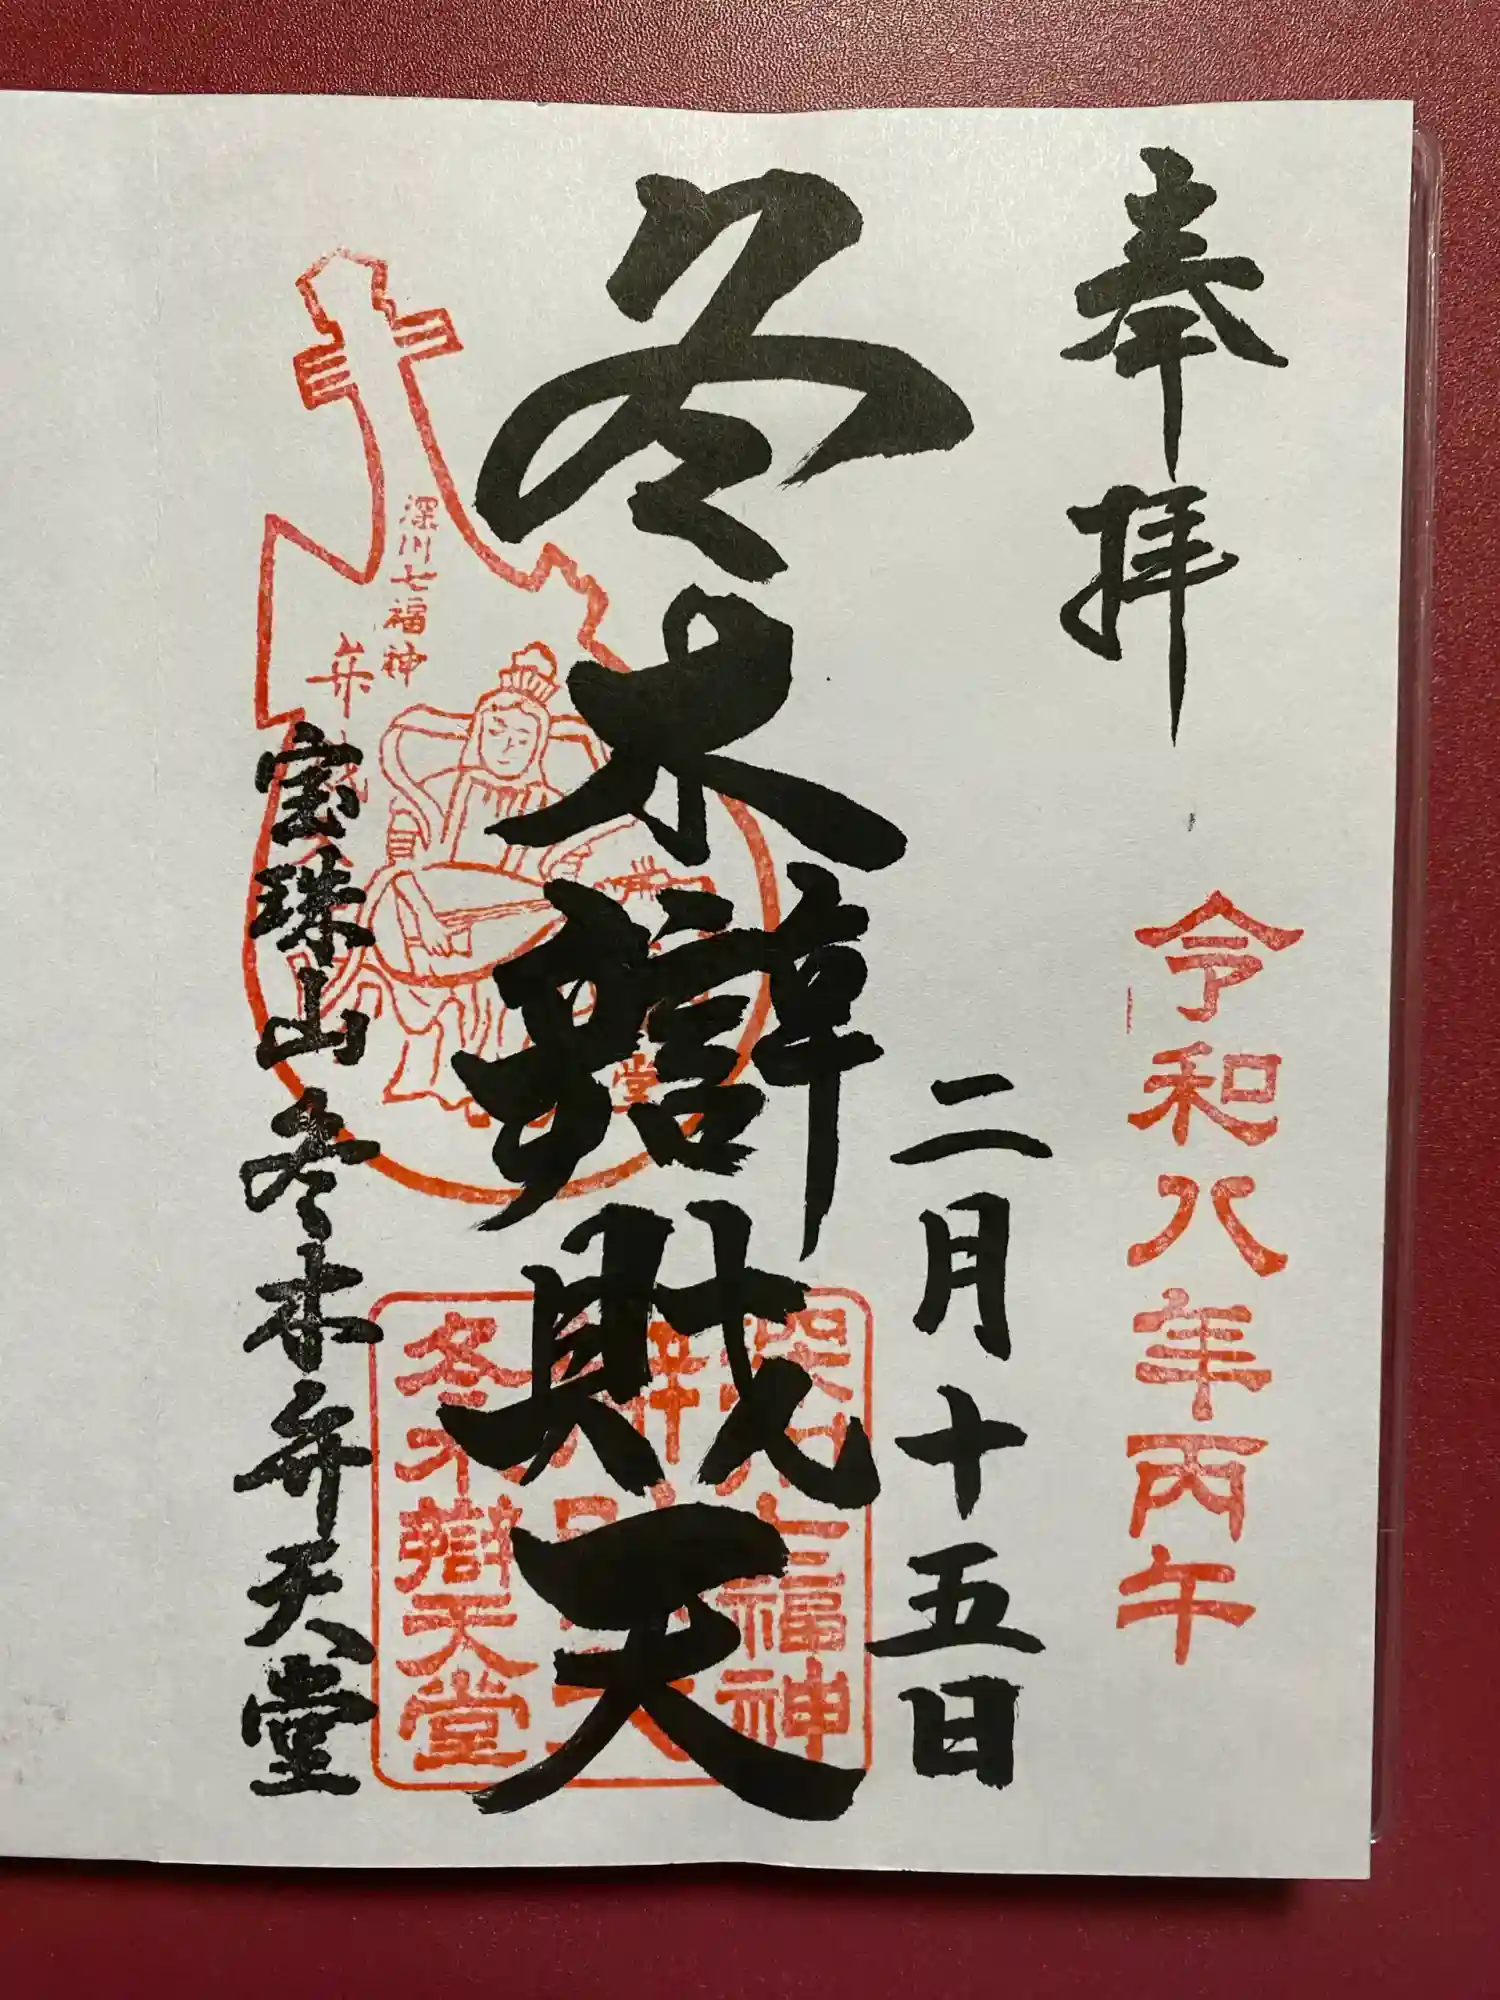 奉拝
令和八年丙午
二月十五日
冬木辯財天
深川七福神
深川七福神
冬木辯天堂
宝珠山 冬木弁天堂